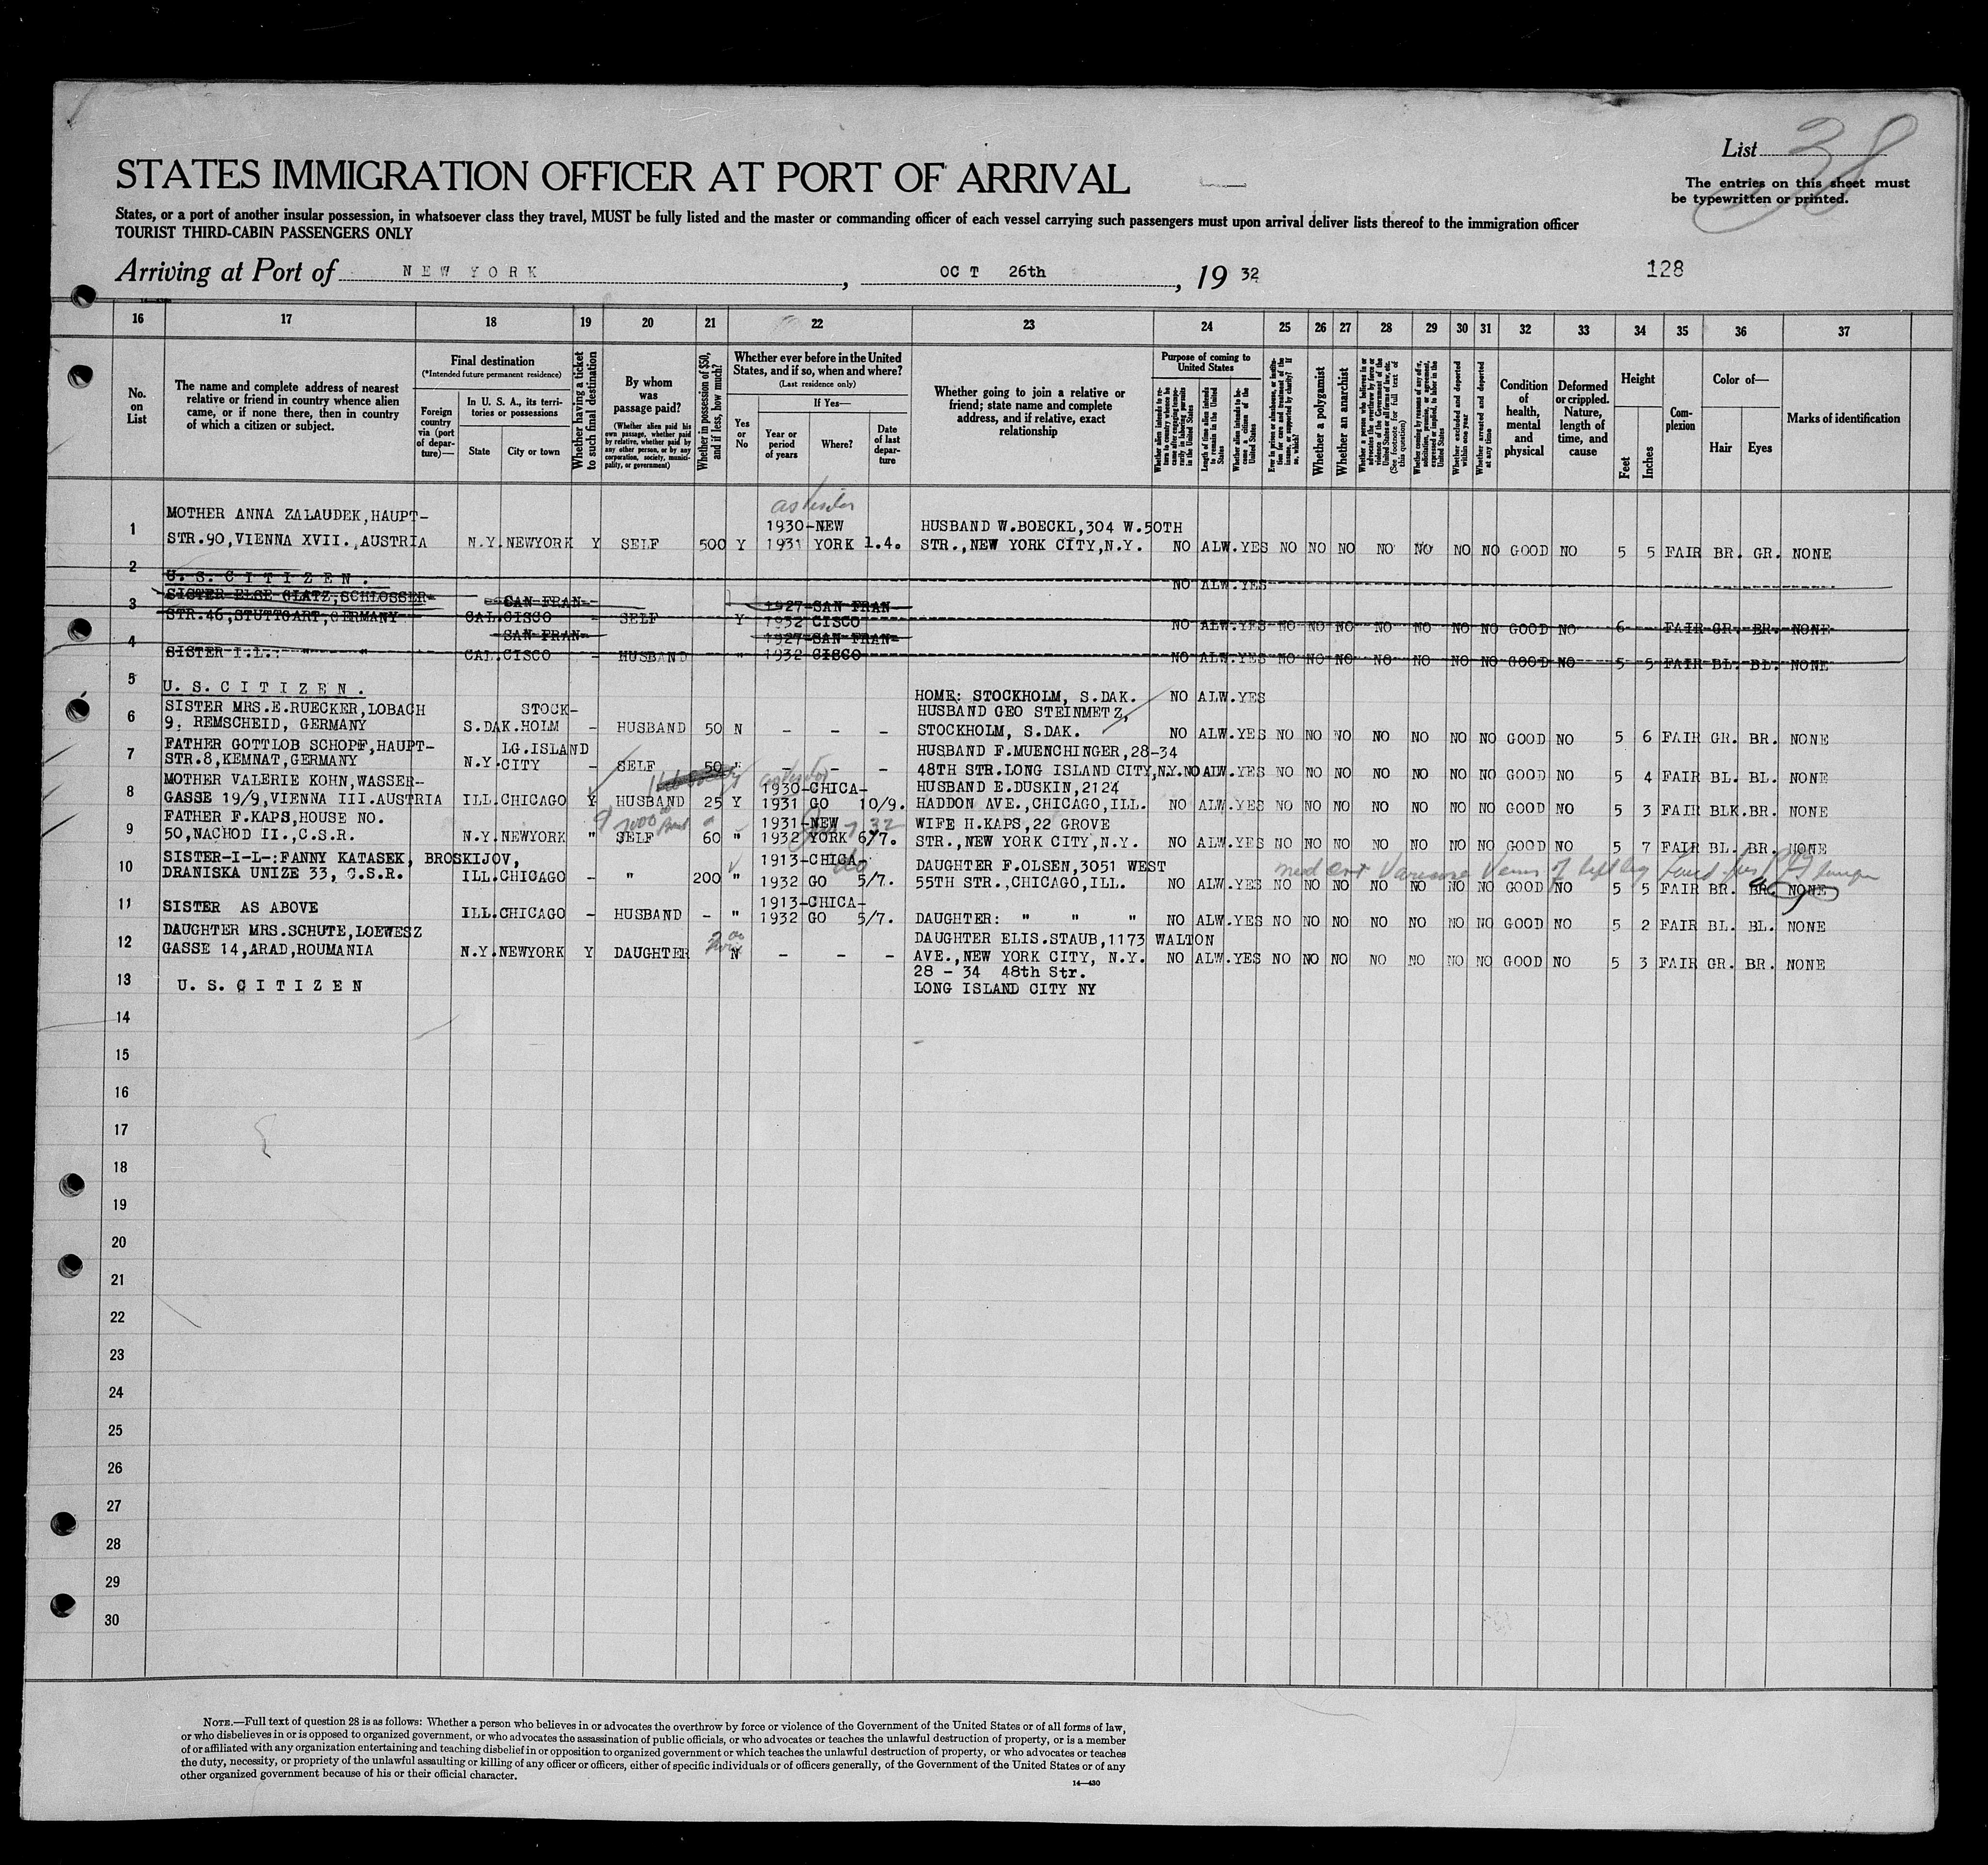 List 38
STATES IMMIGRATION OFFICER AT PORT OF ARRIVAL
The entries on this sheet must
be typewritten or printed.
States, or a port of another insular possession, in whatsoever class they travel, MUST be fully listed and the master or commanding officer of each vessel carrying such passengers must upon arrival deliver lists thereof to the immigration officer
TOURIST THIRD-CABIN PASSENGERS ONLY
Arriving at Port of NEW YORK, OCT 26th, 19 32
128
16 17 18 19 20 21 22 23 24 25 26 27 28 29 30 31 32 33 34 35 36 37
No. on List
The name and complete address of nearest
relative or friend in country whence alien
came, or if none there, then in country
of which a citizen or subject.
Final destination
(*Intended future permanent residence)
Foreign
country
via (port
of depar-
ture)—
In U. S. A., its terri-
tories or possessions
State
City or town
Whether having a ticket
to such final destination
By whom
was
passage paid?
(Whether alien paid his
own passage, whether paid
by relative, whether paid by
any other person, or by any
corporation, society, munici-
pality, or government)
Whether in possession of $50,
and if less, how much?
Whether ever before in the United
States, and if so, when and where?
(Last residence only)
Yes
or
No
If Yes—
Year or
period
of years
Where?
Date
of last
depar-
ture
Whether going to join a relative or
friend; state name and complete
address, and if relative, exact
relationship
Purpose of coming to
United States
Whether alien intends to re-
turn to country whence he
came after engaging tempo-
rarily in laboring pursuits
in the United States
Length of time alien intends
to remain in the United
States
Whether alien intends to be-
come a citizen of the
United States
Ever in prison or almshouse, or institu-
tion for care and treatment of the
insane, or supported by charity? If
so, which?
Whether a polygamist
Whether an anarchist
Whether a person who believes in or
advocates the overthrow by force or
violence of the Government of the
United States or all forms of law, etc.
(See footnote for full text of
this question)
Whether coming by reasons of any offer,
solicitation, promise, or agreement,
expressed or implied, to labor in the
United States
Whether excluded and deported
within one year
Whether arrested and deported
at any time
Condition
of
health,
mental
and
physical
Deformed
or crippled.
Nature,
length of
time, and
cause
Height
Feet
Inches
Com-
plexion
Color of—
Hair
Eyes
Marks of identification
MOTHER ANNA ZALAUDEK,HAUPT- 1930-NEW HUSBAND W.BOECKL,304 W.50TH
1 STR.90,VIENNA XVII.,AUSTRIA N.Y. NEWYORK Y SELF 500 Y 1931 YORK 1.4. STR.,NEW YORK CITY,N.Y. NO ALW.YES NO NO NO NO NO NO NO GOOD NO 5 5 FAIR BR. GR. NONE
2 U. S. C I T I Z E N . NO ALW.YES
SISTER ELSE GLATZ,SCHLOSSER- SAN FRAN- 1927-SAN FRAN-
3 STR.46,STUTTGART,GERMANY CAL.CISCO - SELF Y 1932 CISCO NO ALW.YES NO NO NO NO NO NO NO GOOD NO 6 FAIR GR. BR. NONE
SAN FRAN- 1927-SAN FRAN-
4 SISTER-I.L.: " " CAL.CISCO - HUSBAND " 1932 CISCO NO ALW.YES NO NO NO NO NO NO NO GOOD NO 5 5 FAIR BL. BL. NONE
5 U. S. C I T I Z E N . HOME: STOCKHOLM, S.DAK. NO ALW.YES
SISTER MRS.E.RUECKER,LOBACH STOCK- HUSBAND GEO STEINMETZ,
6 9, REMSCHEID, GERMANY S.DAK.HOLM - HUSBAND 50 N - - - STOCKHOLM, S.DAK. NO ALW.YES NO NO NO NO NO NO NO GOOD NO 5 6 FAIR GR. BR. NONE
FATHER GOTTLOB SCHOPF,HAUPT- LG.ISLAND HUSBAND F.MUENCHINGER,28-34
7 STR.8,KEMNAT,GERMANY N.Y.CITY - SELF 50 - - - 48TH STR.LONG ISLAND CITY,N.Y. NO ALW.YES NO NO NO NO NO NO NO GOOD NO 5 4 FAIR BL. BL. NONE
MOTHER VALERIE KOHN,WASSER- 1930-CHICA- HUSBAND E.DUSKIN,2124
8 GASSE 19/9,VIENNA III.AUSTRIA ILL.CHICAGO Y HUSBAND 25 Y 1931 GO 10/9. HADDON AVE.,CHICAGO,ILL. NO ALW.YES NO NO NO NO NO NO NO GOOD NO 5 3 FAIR BLK.BR. NONE
FATHER F.KAPS,HOUSE NO. 1931-NEW WIFE H.KAPS,22 GROVE
9 50,NACHOD II.,C.S.R. N.Y.NEWYORK " SELF 60 " 1932 YORK 6/7. STR.,NEW YORK CITY,N.Y. NO ALW.YES NO NO NO NO NO NO NO GOOD NO 5 7 FAIR BL. BR. NONE
SISTER-I-L-:FANNY KATASEK, BROSKIJOV, 1913-CHICA- DAUGHTER F.OLSEN,3051 WEST
med cert Varicose Veins of left leg
10 DRANISKA UNIZE 33, C.S.R. ILL.CHICAGO - " 200 " 1932 GO 5/7. 55TH STR.,CHICAGO,ILL. NO ALW.YES NO NO NO NO NO NO NO GOOD NO 5 5 FAIR BR. BR. NONE
1913-CHICA-
11 SISTER AS ABOVE ILL.CHICAGO - HUSBAND - " 1932 GO 5/7. DAUGHTER: " " " NO ALW.YES NO NO NO NO NO NO NO GOOD NO 5 2 FAIR BL. BL. NONE
DAUGHTER MRS.SCHUTE,LOEWESZ DAUGHTER ELIS.STAUB,1173 WALTON
12 GASSE 14,ARAD,ROUMANIA N.Y.NEWYORK Y DAUGHTER N - - - AVE.,NEW YORK CITY, N.Y. NO ALW.YES NO NO NO NO NO NO NO GOOD NO 5 3 FAIR GR. BR. NONE
28 - 34 48th Str.
13 U. S. C I T I Z E N LONG ISLAND CITY NY
14
15
16
17
18
19
20
21
22
23
24
25
26
27
28
29
30
NOTE.—Full text of question 28 is as follows: Whether a person who believes in or advocates the overthrow by force or violence of the Government of the United States or of all forms of law,
or who disbelieves in or is opposed to organized government, or who advocates the assassination of public officials, or who advocates or teaches the unlawful destruction of property, or is a member
of or affiliated with any organization entertaining and teaching disbelief in or opposition to organized government or which teaches the unlawful destruction of property, or who advocates or teaches
the duty, necessity, or propriety of the unlawful assaulting or killing of any officer or officers, either of specific individuals or of officers generally, of the Government of the United States or of any
other organized government because of his or their official character.
14—430